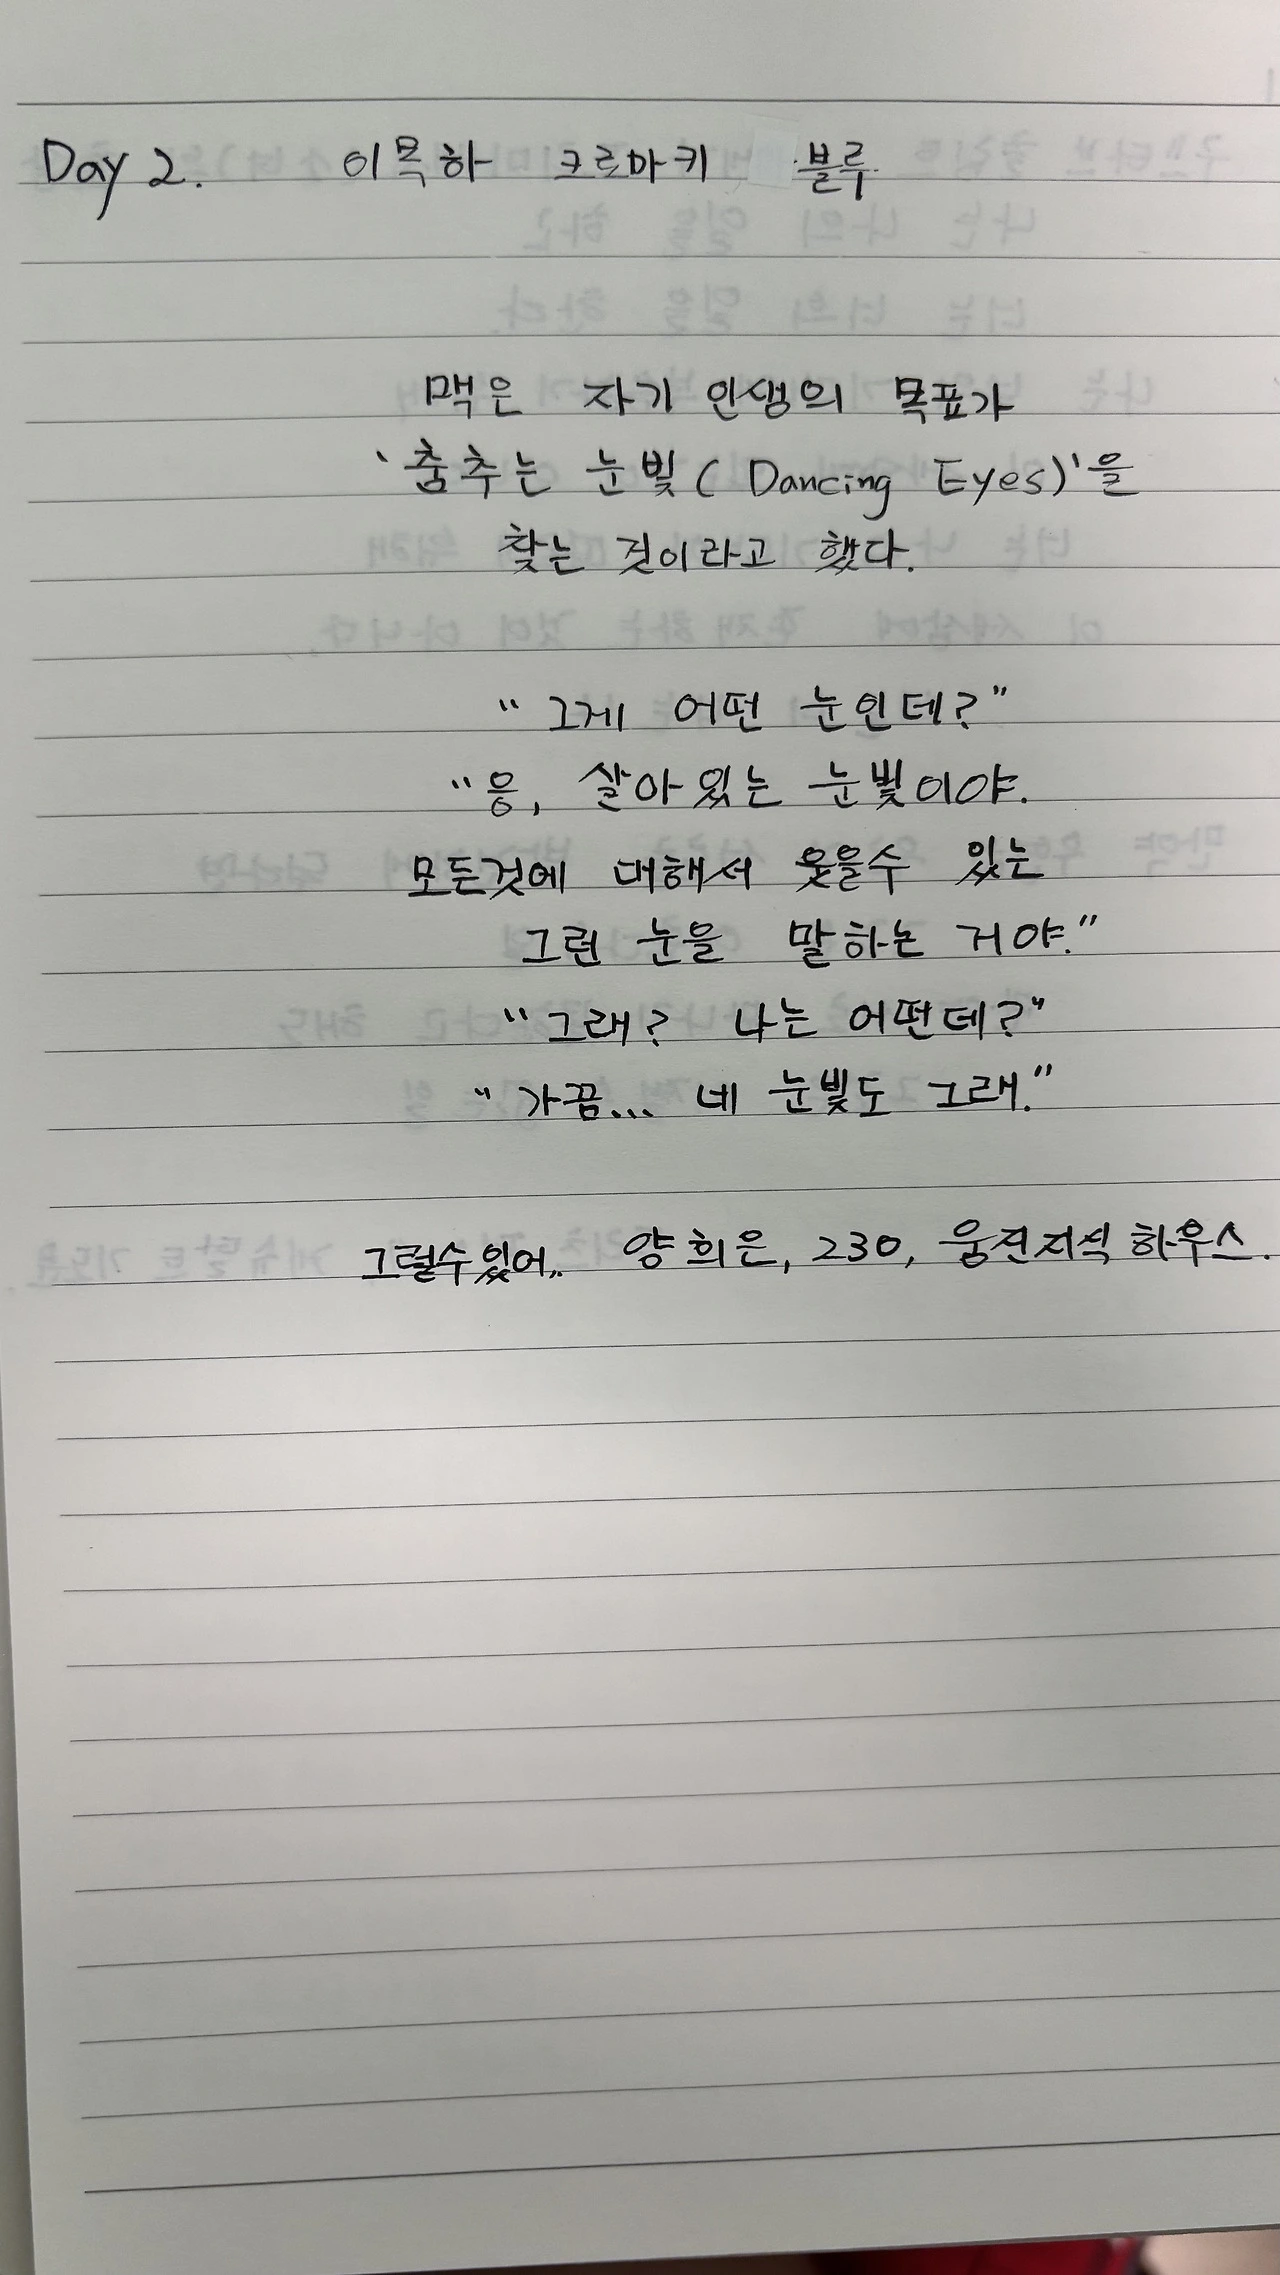 Day 2. 이목하 크로마키 블루
맥은 자기 인생의 목표가
'춤추는 눈빛(Dancing Eyes)'을
찾는 것이라고 했다.
"그게 어떤 눈인데?"
"응, 살아있는 눈빛이야.
모든것에 대해서 웃을수 있는
그런 눈을 말하는 거야."
"그래? 나는 어떤데?"
"가끔... 네 눈빛도 그래."
그럴수있어.. 양희은, 230, 웅진지식하우스.